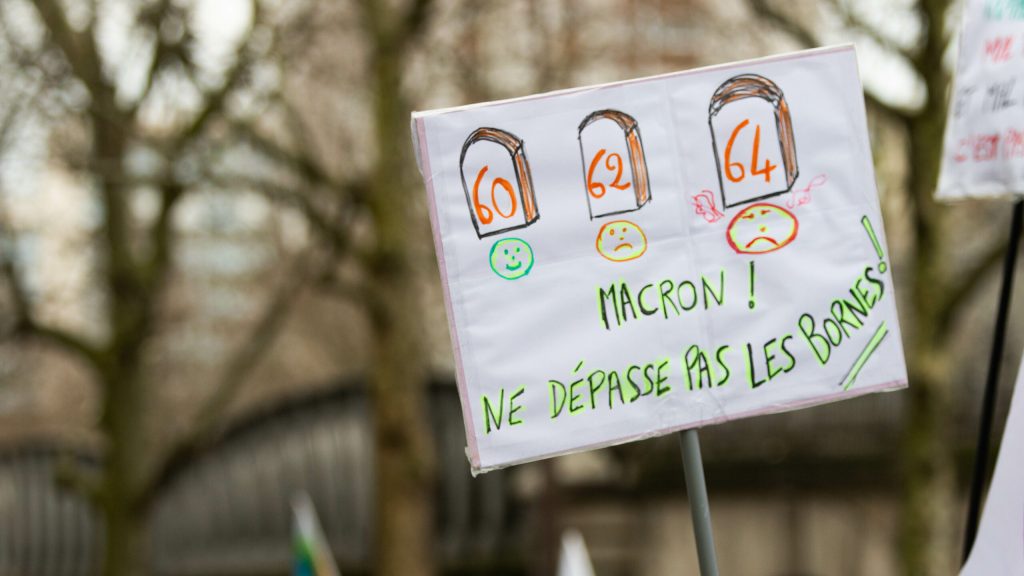 60 62 64
MACRON !
NE DÉPASSE PAS LES BORNES !